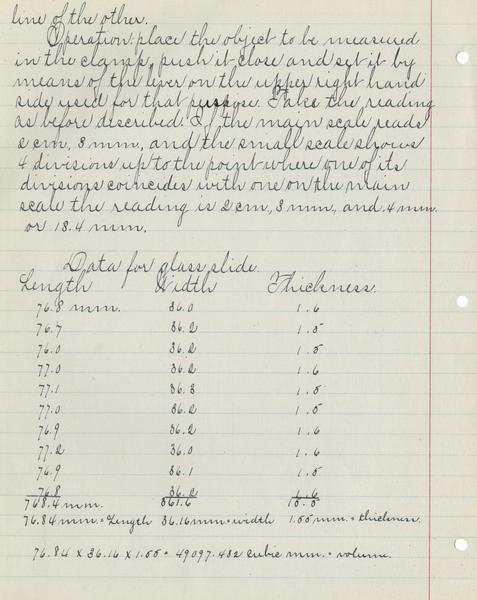 line of the other.
Operation: place the object to be measured
in the clamp, push it close and set it by
means of the lever on the upper right hand
side used for that purpose. Take the reading
as before described. If the main scale reads
2 cm, 3 mm, and the small scale shows
4 divisions up to the point where one of its
divisions coincides with one on the main
scale the reading is 2 cm, 3 mm, and .4 mm
or 13.4 mm.
Data for glass slide.
Length Width Thickness.
76.8 mm. 36.0 1.6
76.7 36.2 1.5
76.0 36.2 1.5
77.0 36.2 1.6
77.1 36.3 1.5
77.0 36.2 1.5
76.9 36.2 1.6
77.2 36.0 1.6
76.9 36.1 1.5
76.8 36.2 1.6
768.4 mm. 361.6 15.5
76.84 mm. = Length 36.16 mm = width 1.55 mm. = thickness.
76.84 x 36.16 x 1.55 = 49097.432 cubic mm. = volume.